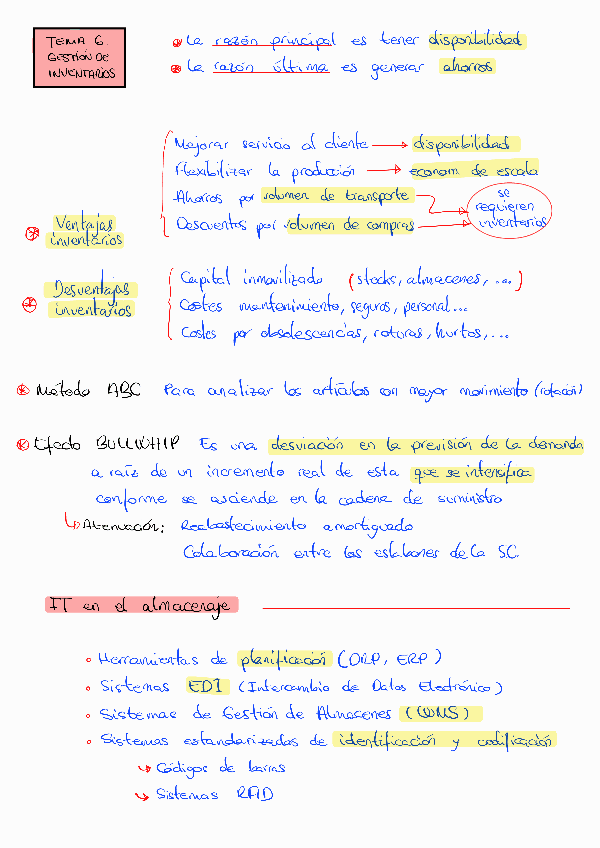 TEMA 6.
GESTIÓN DE
INVENTARIOS
La razón principal es tener disponibilidad
La razón última es generar ahorros
Ventajas
inventarios
Mejorar servicio al cliente → disponibilidad
Flexibilizar la producción → econom de escala
Ahorros por volumen de transporte
Descuentos por volumen de compras
se
requieren
inventarios
Desventajas
inventarios
Capital inmovilizado (stocks, almacenes, ...)
Costes mantenimiento, seguros, personal...
Costes por obsolescencias, roturas, hurtos, ...
Método ABC Para analizar los artículos con mayor movimiento (rotación)
Efecto BULLWHIP Es una desviación en la previsión de la demanda
a raíz de un incremento real de esta que se intensifica
conforme se asciende en la cadena de suministro
Atenuación: Reabastecimiento amortiguado
Colaboración entre los eslabones de la S.C.
IT en el almacenaje
Herramientas de planificación (DRP, ERP)
Sistemas EDI (Intercambio de Datos Electrónico)
Sistemas de Gestión de Almacenes (WMS)
Sistemas estandarizados de identificación y codificación
Códigos de barras
Sistemas RFID